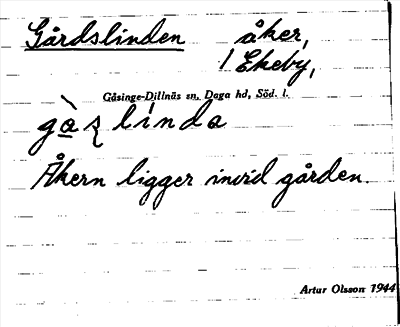 Gårdslinden åker,
1 Ekeby,
Gåsinge-Dillnäs sn, Daga hd, Söd. l.
Åkern ligger invid gården.
Artur Olsson 1944